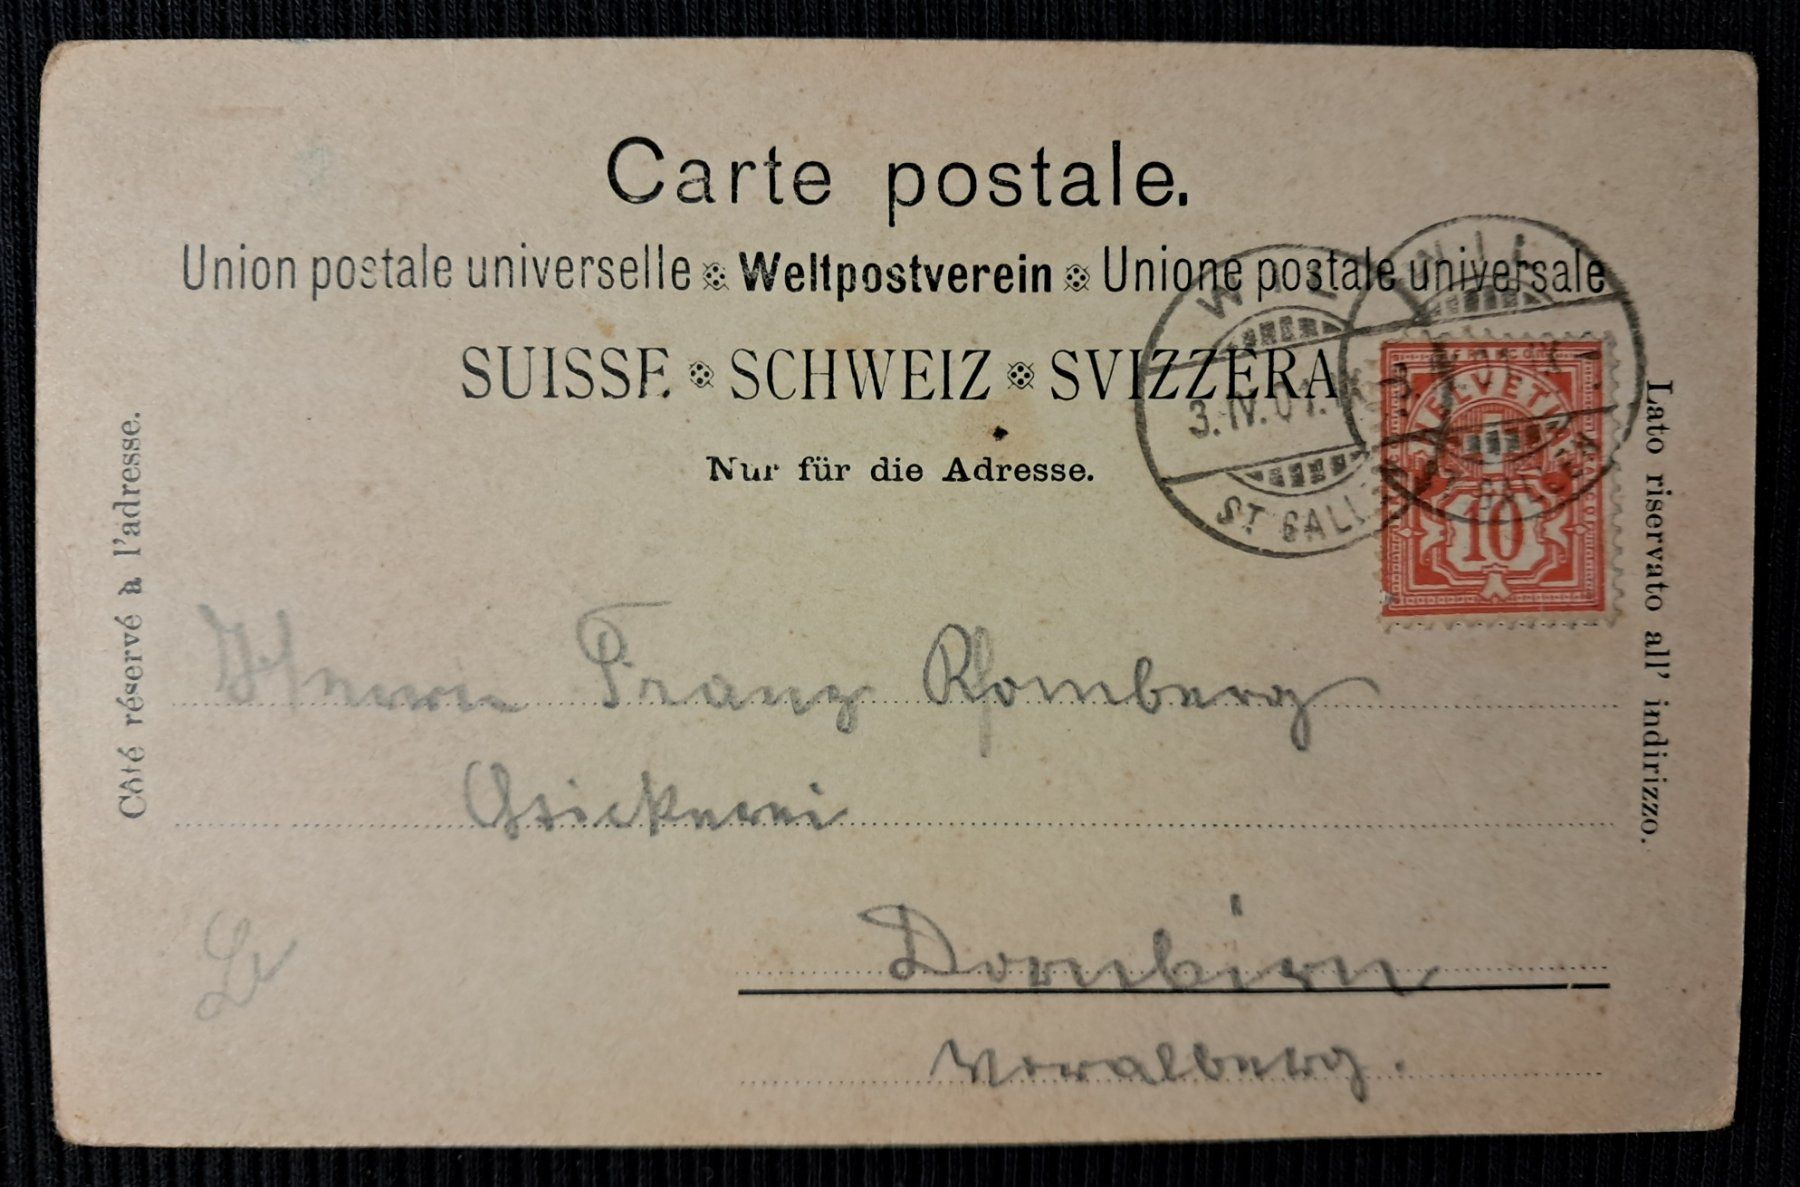 Carte postale.
Union postale universelle Weltpostverein Unione postale universale
SUISSE SCHWEIZ SVIZZERA
Nur für die Adresse.
Côté réservé à l'adresse.
Lato riservato all' indirizzo.
WIL
3.IV.01.
ST. GALLEN
WIL
FRANCO
HELVETIA
10
Herrn Franz Rhomberg
Stickerei
Dornbirn
Voralberg.